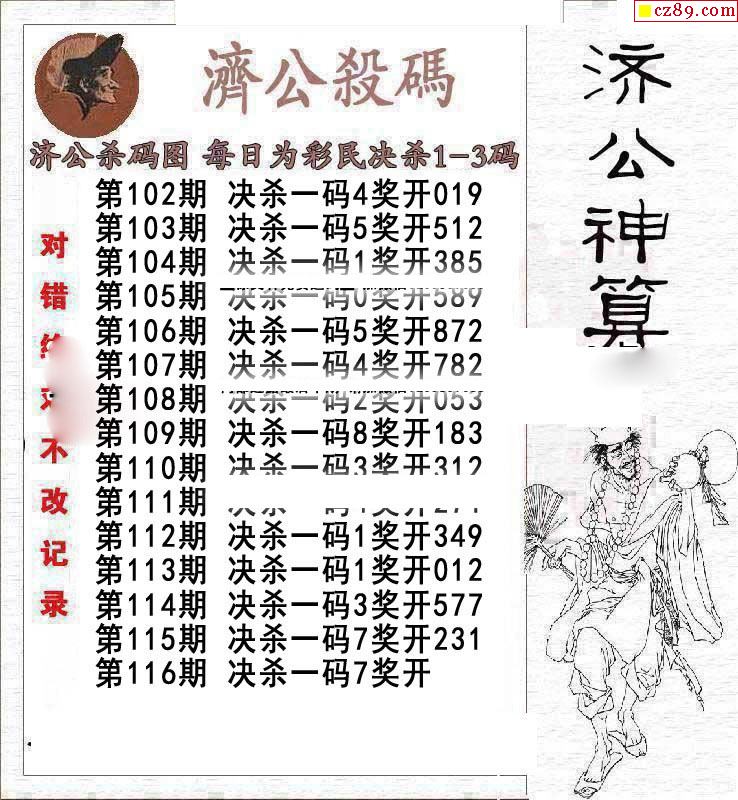 cz89.com
濟公殺碼
济公杀码图 每日为彩民决杀1-3码
第102期 决杀一码4奖开019
第103期 决杀一码5奖开512
第104期 决杀一码1奖开385
第105期 决杀一码0奖开589
第106期 决杀一码5奖开872
第107期 决杀一码4奖开782
第108期 决杀一码2奖开053
第109期 决杀一码8奖开183
第110期 决杀一码3奖开312
第111期
第112期 决杀一码1奖开349
第113期 决杀一码1奖开012
第114期 决杀一码3奖开577
第115期 决杀一码7奖开231
第116期 决杀一码7奖开
对错绝对不改记录
济公神算